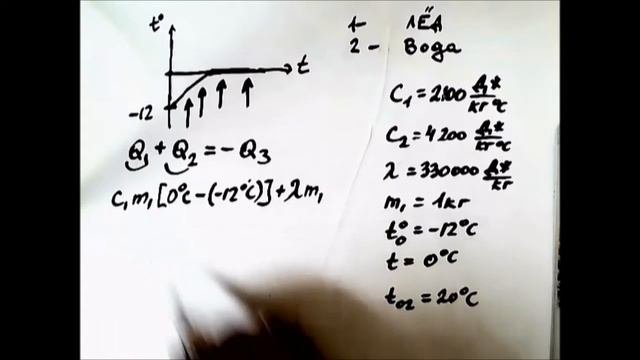 t°
t
-12
Q₁ + Q₂ = - Q₃
C₁m₁[0°C-(-12°C)]+λm₁
1- ЛЁД
2 - Вода
C₁ = 2100 Дж/кг°C
C₂ = 4200 Дж/кг°C
λ = 330000 Дж/кг
m₁ = 1кг
t₀° = -12°C
t = 0°C
t₀₂ = 20°C